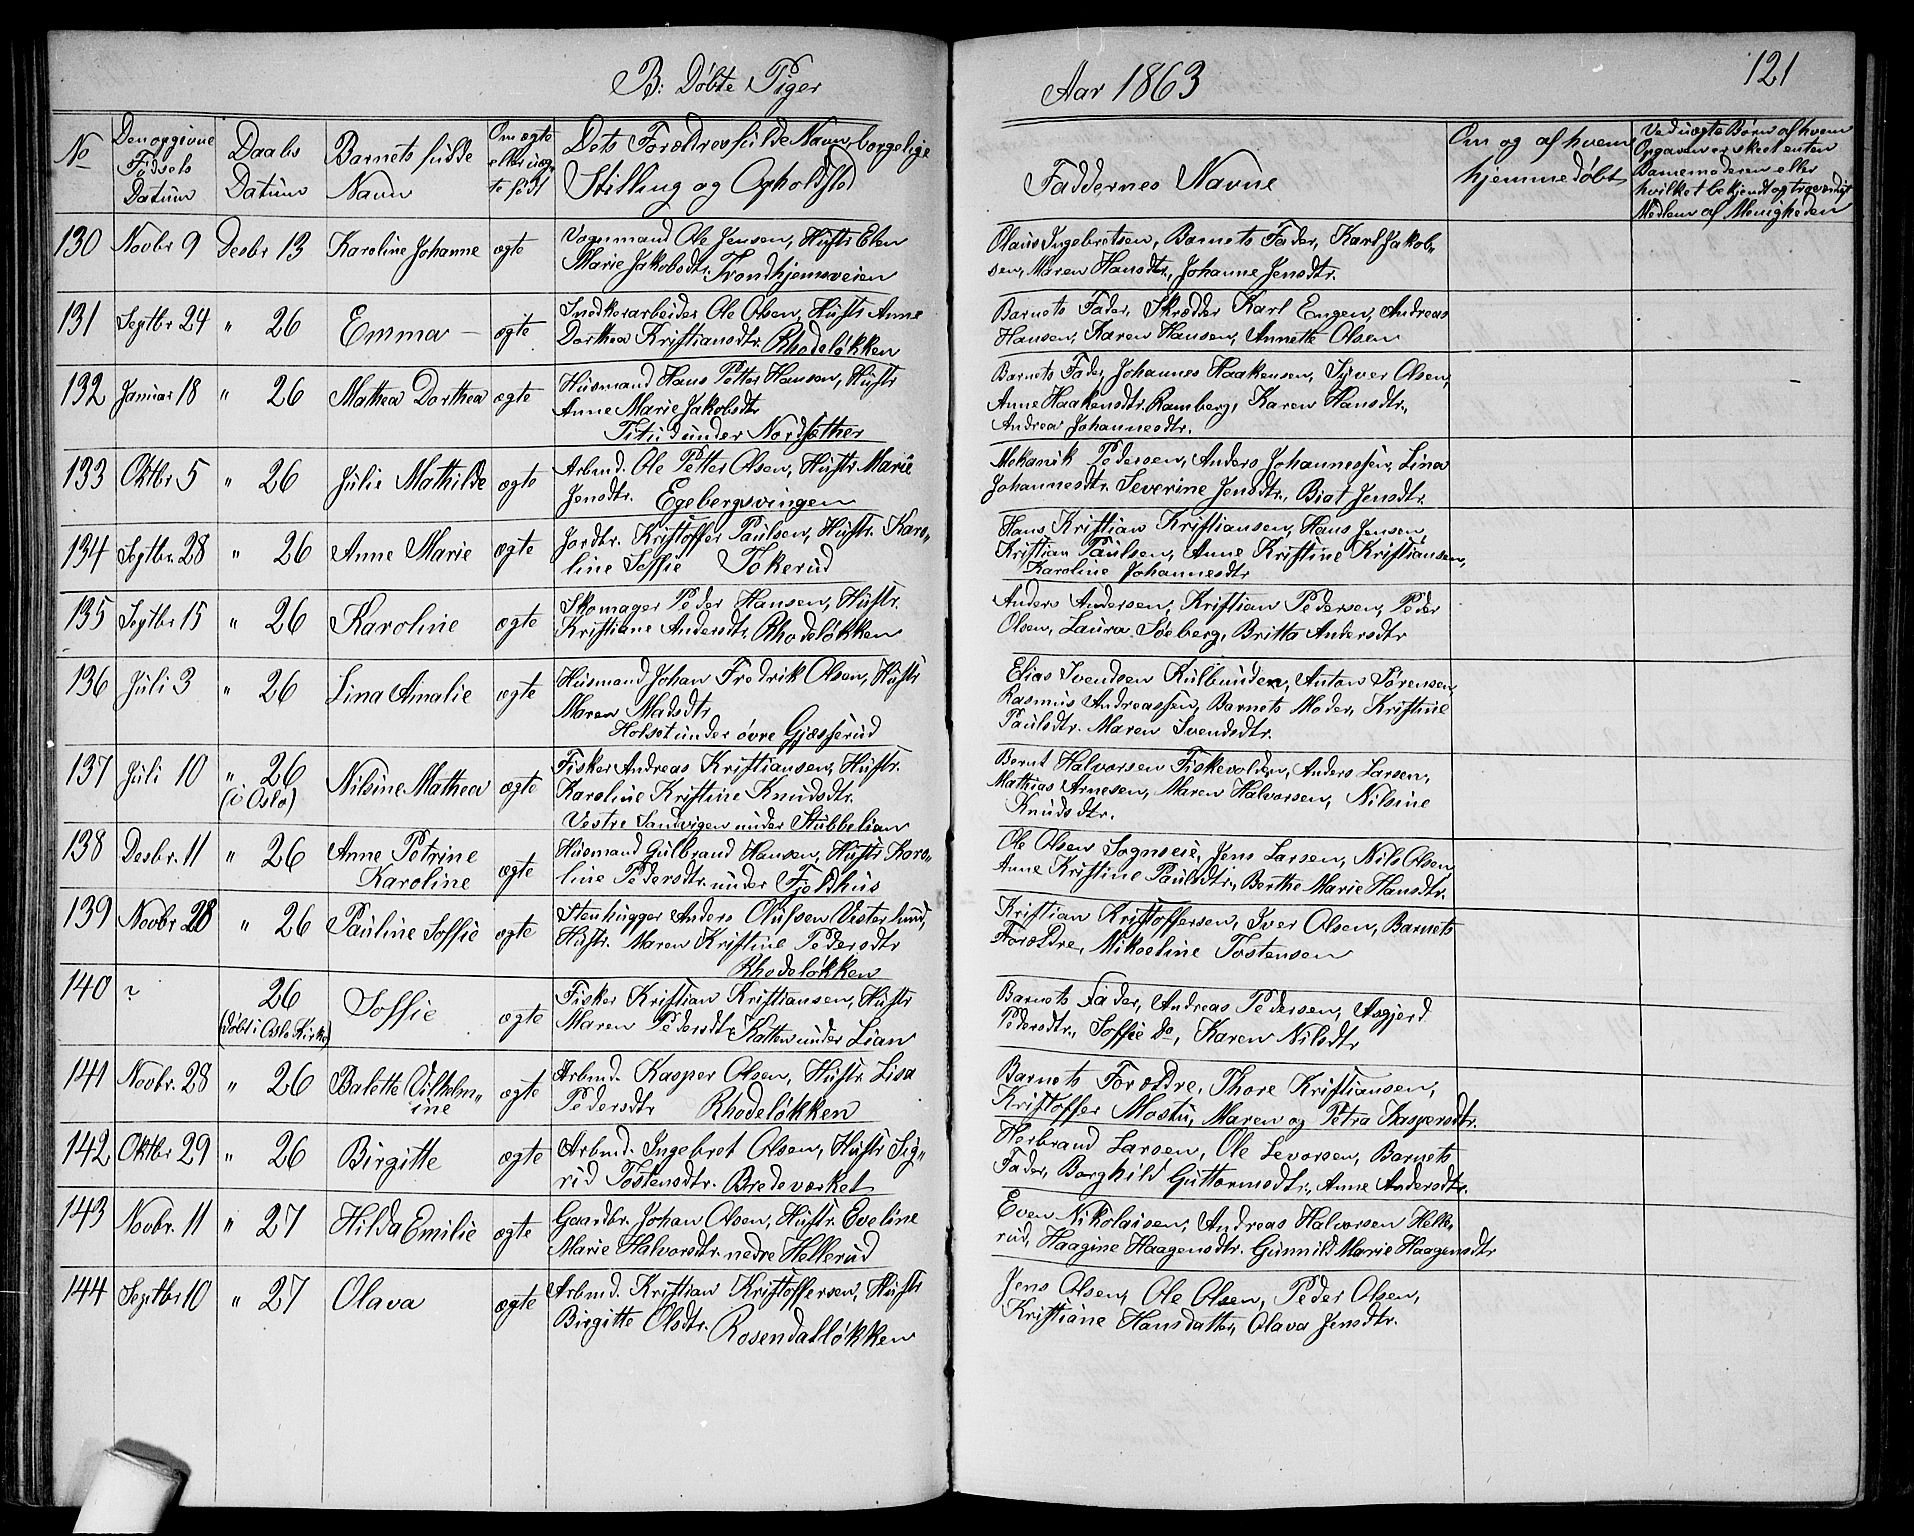 B: Døbte Piger
Aar 1863
121
No
Den opgivne
Fødsels
Datum
Daabs
Datum
Barnets fulde
Navn
Om ægte
eller uæg
te født
Dets Forældres fulde Navn, borgelige
Stilling og Opholdsted
Faddernes Navne
Om og af hvem
hjemmedøbt
Ved uægte Børn af hvem
Opgaven er skeet enten
Barnemoderen eller
hvilket bekjendt og troværdigt
Medlem af Menigheden
130 Novbr 9 Desbr 13 Karoline Johanne ægte
Vognmand Ole Jensen, Hustr Elen
Marie Jakobsdtr. Trondhjemsveien
Olaus Ingebretsen, Barnets Fader, Karl Jakob-
sen, Maren Hansdtr., Johanne Jensdtr.
131 Septbr 24 " 26 Emma ægte
Snedkerarbeider Ole Olsen, Hustr Anne
Dorthea Kristiansdtr. Rhodeløkken
Barnets Fader, Skrædder Karl Engen, Andreas
Hansen, Karen Hansen, Annette Olsen
132 Januar 18 " 26 Mathea Dorthea ægte
Husmand Hans Petter Hansen, Hustr
Anne Marie Jakobsdtr
Titud under Nordsether
Barnets Fader, Johannes Haakensen, Syver Olsen,
Anne Haakensdtr. Ramberg, Karen Hansdtr.,
Andrea Johannesdtr.
133 Oktbr 5 " 26 Julie Mathilde ægte
Arbmd. Ole Petter Olsen, Hustr Marie
Jensdtr. Egebergsvingen
Mekanik Pedersen, Anders Johannessen, Lina
Johannesdtr. Severine Jensdtr., Biat Jensdtr.
134 Septbr. 28 " 26 Anne Marie ægte
Jordtr. Kristoffer Paulsen, Hustr. Karo-
line Soffie Tokerud
Hans Kristian Kristiansen, Hans Jensen,
Kristian Paulsen, Anne Kristine Kristiansen,
Karoline Johannesdtr
135 Septbr 15 " 26 Karoline ægte
Skomager Peder Hansen, Hustr.
Kristiane Andersdtr. Rhodeløkken
Anders Andersen, Kristian Pedersen, Peder
Olsen, Laura Søeberg, Britta Andersdtr
136 Juli 3 " 26 Lina Amalie ægte
Husmand Johan Fredrik Olsen, Hustr
Maren Madsdtr
Holset under øvre Gjæsserud
Elias Svendsen Kulbunden, Anton Sørensen,
Rasmus Andreassen, Barnets Moder, Kristine
Paulsdtr. Maren Svendsdtr.
137 Juli 10 " 26 Nilsine Mathea ægte
(i Oslo)
Fisker Andreas Kristiansen, Hustr.
Karoline Kristine Knudsdtr.
Vestre Sandvigen under Stubbelian
Bernt Halvorsen Fiskevolden, Anders Larsen,
Mathias Arnesen, Maren Halvorsen, Nilsine
Knudsdtr.
138 Desbr. 11 " 26 Anne Petrine
Karoline ægte
Husmand Gulbrand Hansen, Hustr Karo-
line Pedersdtr. under Fjeldhus
Ole Olsen Sognseie, Jens Larsen, Nils Olsen,
Anne Kristine Paulsdtr., Berthe Marie Hansdtr.
139 Novbr 28 " 26 Pauline Soffie ægte
Stenhugger Anders Olufsen Vister lund,
Hustr. Maren Kristine Pedersdtr
Rhodeløkken
Kristian Kristoffersen, Iver Olsen, Barnets
Forældre, Mikoeline Tostensen
140 ? 26 Soffie ægte
(døbt i Oslo Kirke)
Fisker Kristian Kristiansen, Hustr
Maren Pedersdtr Katten under Lian
Barnets Fader, Andreas Pedersen, Asgjerd
Pedersdtr., Soffie do, Karen Nilsdtr
141 Novbr. 28 " 26 Balette Vilhelm-
ine ægte
Arbmd. Kasper Olsen, Hustr. Lisa
Pedersdtr Rhodeløkken
Barnets Forældre, Thore Kristiansen,
Kristoffer Mostu, Maren og Petra Kaspersdtr.
142 Oktbr 29 " 26 Birgitte ægte
Arbmd. Ingebret Olsen, Hustr Sig-
rid Tostensdtr. Bredeværket
Herbrand Larsen, Ole Levorsen, Barnets
Fader, Borghild Guttormsdtr., Anne Andersdtr.
143 Novbr. 11 " 27 Hilda Emilie ægte
Gaardbr. Johan Olsen, Hustr. Eveline
Marie Halvorsdtr. nedre Hellerud
Even Nikolaisen, Andreas Halvorsen Helle-
rud, Haagine Haagensdtr. Gunnild Marie Haagensdtr
144 Septbr 10 " 27 Olava ægte
Arbmd. Kristian Kristoffersen, Hustr
Birgitte Olsdtr. Rosendalløkken
Jens Olsen, Ole Olsen, Peder Olsen,
Kristiane Hansdatter, Olava Jensdtr.